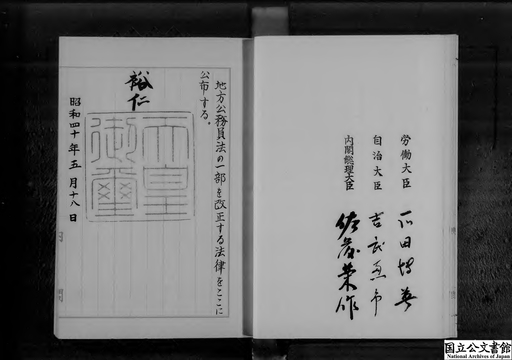 地方公務員法の一部を改正する法律をここに
公布する。
裕仁
天皇御璽
昭和四十年五月十八日
労働大臣 石田博英
自治大臣 吉武恵市
内閣総理大臣 佐藤榮作
国立公文書館
National Archives of Japan